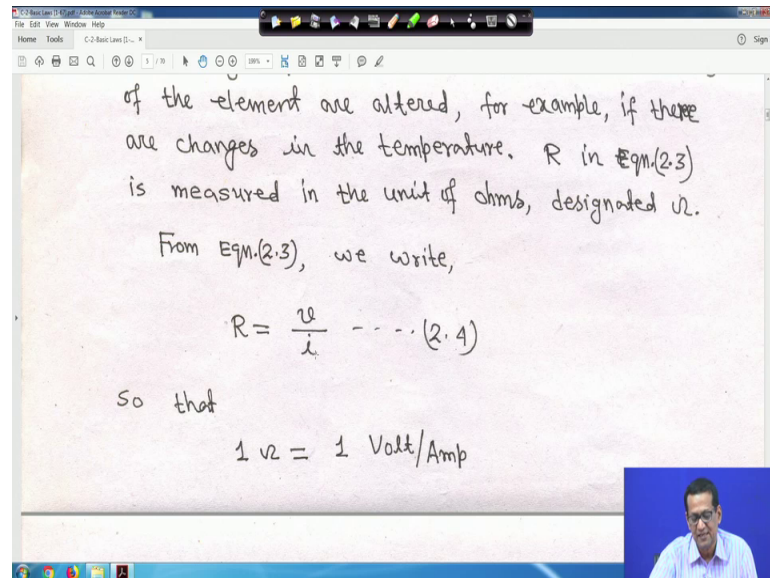 C-2-Basic Laws [1-67].pdf - Adobe Acrobat Reader DC
File Edit View Window Help
Home Tools C-2-Basic Laws [1-... × Sign
5 / 70
of the element are altered, for example, if there
are changes in the temperature. R in Eqn.(2.3)
is measured in the unit of ohms, designated Ω.
From Eqn.(2.3), we write,
R = v/i ---- (2.4)
So that
1 Ω = 1 Volt/Amp